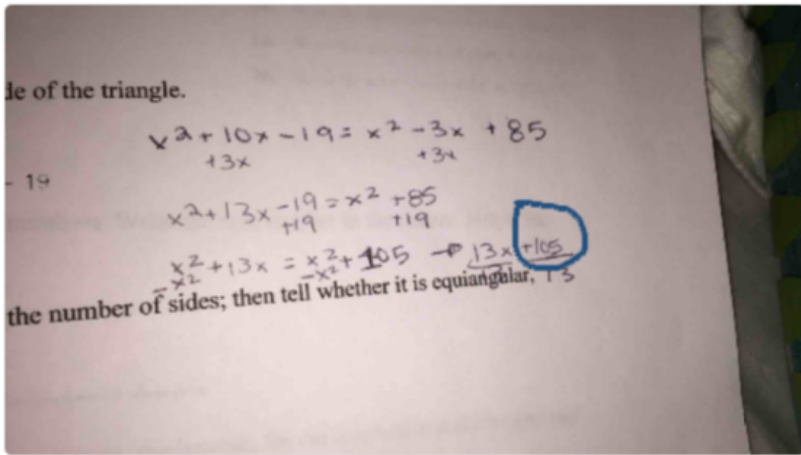 de of the triangle.
x² + 10x - 19 = x² - 3x + 85
+3x +3x
- 19
x² + 13x - 19 = x² + 85
+19 +19
x² + 13x = x² + 105 → 13x +105
-x² -x² 13 13
the number of sides; then tell whether it is equiangular,